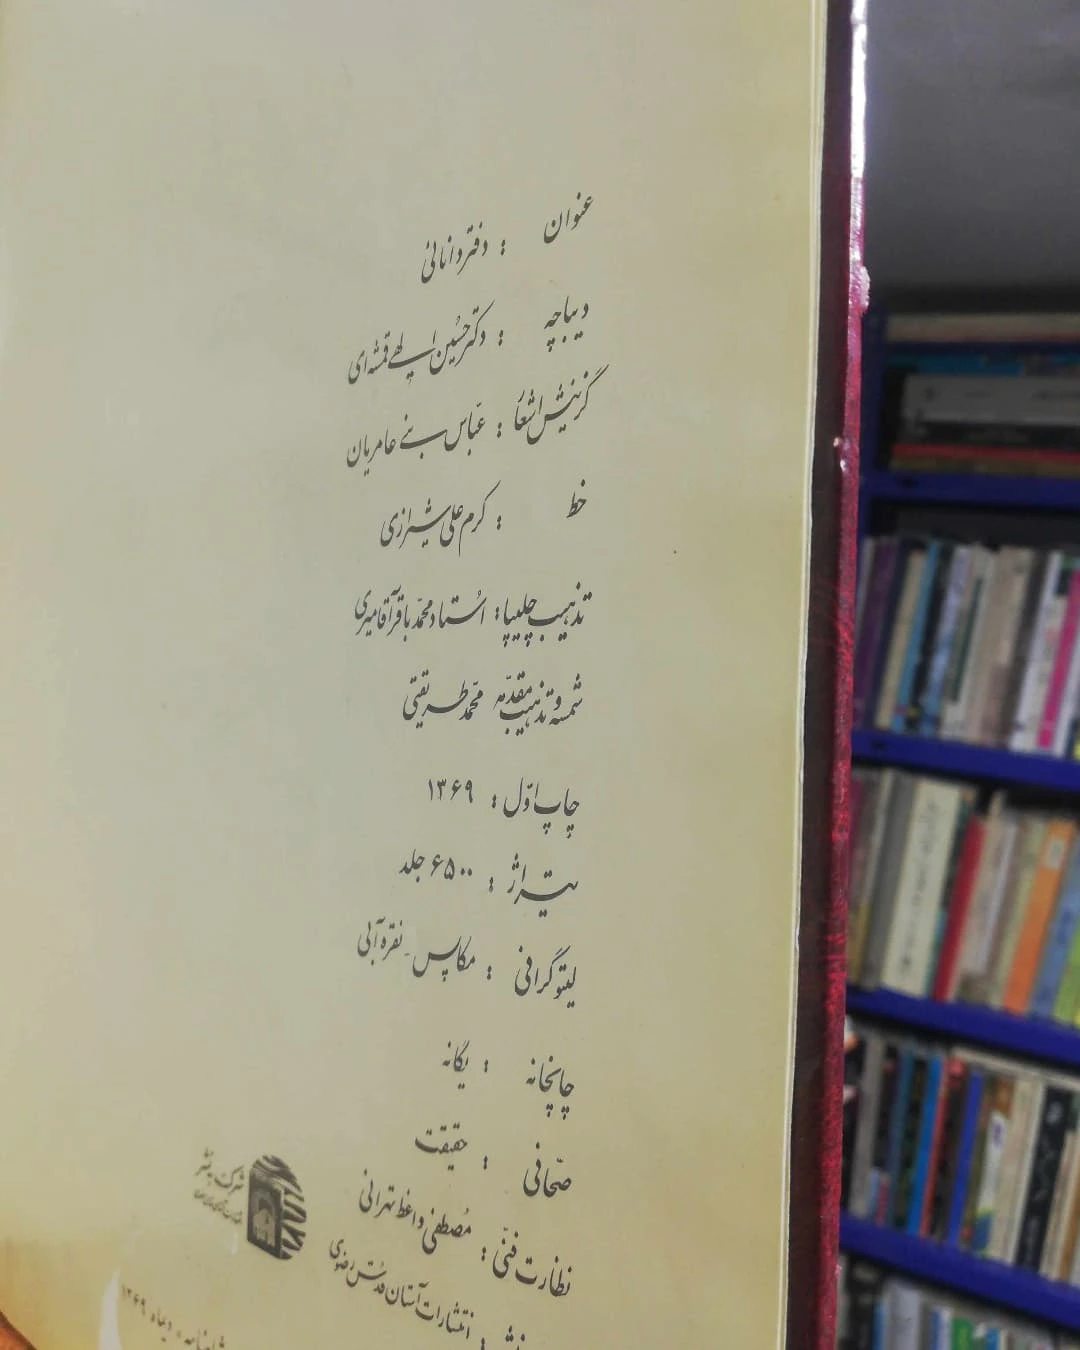 عنوان : دفتر دانائی
دیباچه : دکتر حسین الهی قمشه‌ای
گزینش اشعار : عباس بنی عامریان
خط : کرم علی شیرازی
تذهیب چلیپا : استاد محمد باقر آقامیری
شمسه و تذهیب مقدمه محمد طریقتی
چاپ اول : ۱۳۶۹
تیراژ : ۶۵۰۰ جلد
لیتوگرافی : مکاپس - نقره آبی
چاپخانه : یگانه
صحافی : حقیقت
نظارت فنی : مصطفی واعظ تهرانی
انتشارات آستان قدس رضوی
شرکت به نشر
دیماه ۱۳۶۹